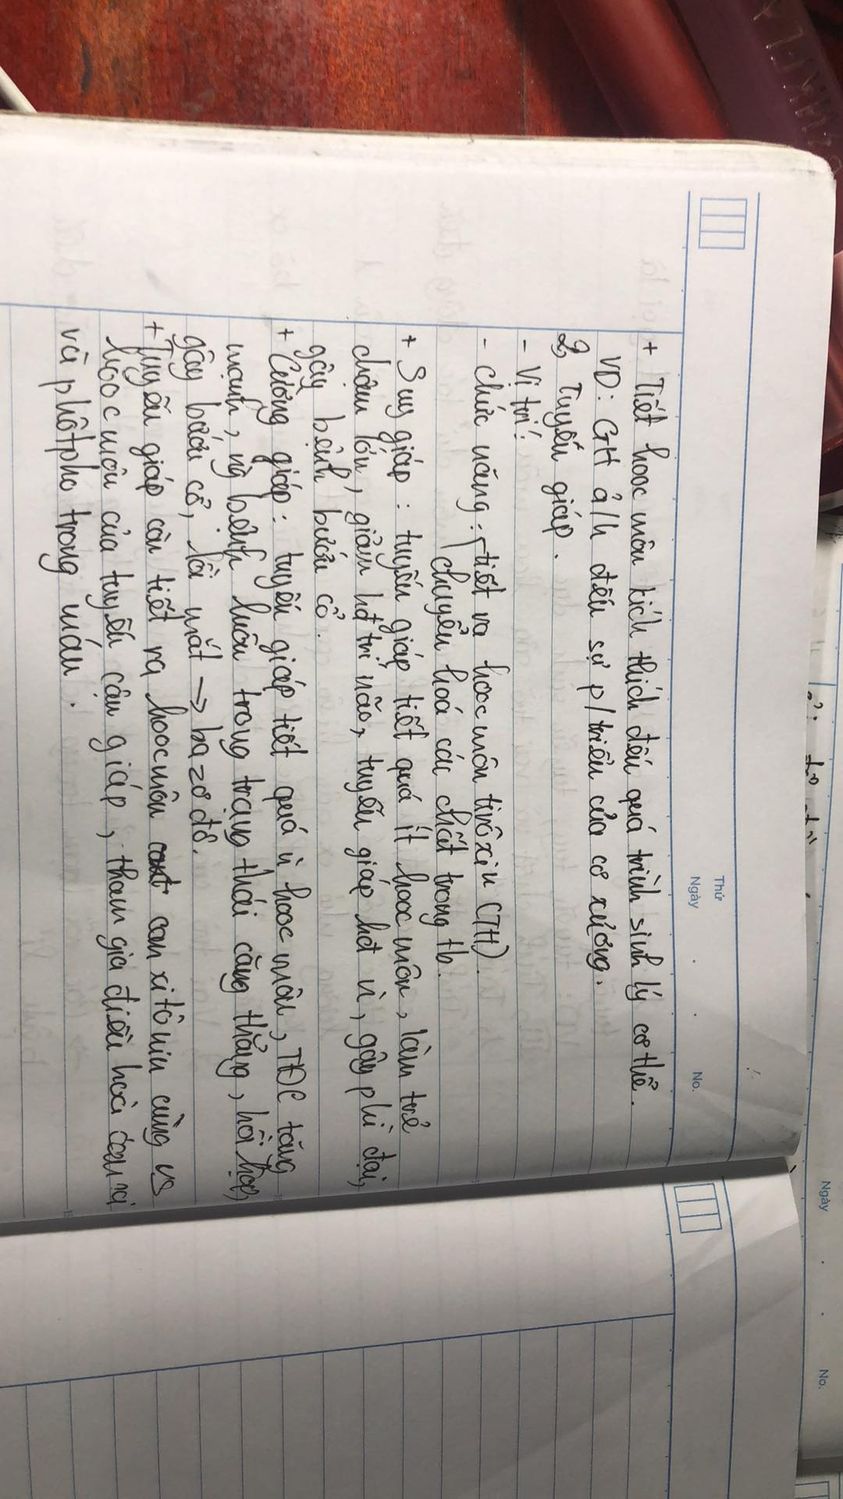 Thứ
Ngày . . No.
+ Tiết hooc môn kích thích đến quá trình sinh lý cơ thể.
VD: GH ả/h đến sự p/triển của cơ xương.
2, Tuyến giáp.
- Vị trí:
- chức năng: tiết ra hooc môn tirôxin (TH)
chuyển hoá các chất trong tb.
+ Suy giáp: tuyến giáp tiết quá ít hooc môn, làm trẻ
chậm lớn, giảm hđ trí não, tuyến giáp hđ ì, gây phì đại,
gây bệnh bướu cổ.
+ Cường giáp: tuyến giáp tiết quá ì hooc môn, TĐC tăng
mạnh, ng bệnh luôn trong trạng thái căng thẳng, hồi hộp,
gây bướu cổ, lồi mắt → bazơđô.
+ Tuyến giáp còn tiết ra hooc môn canxitônin cùng vs
hooc môn của tuyến cận giáp, tham gia điều hoà canxi
và phôtpho trong máu.
Ngày . . No.